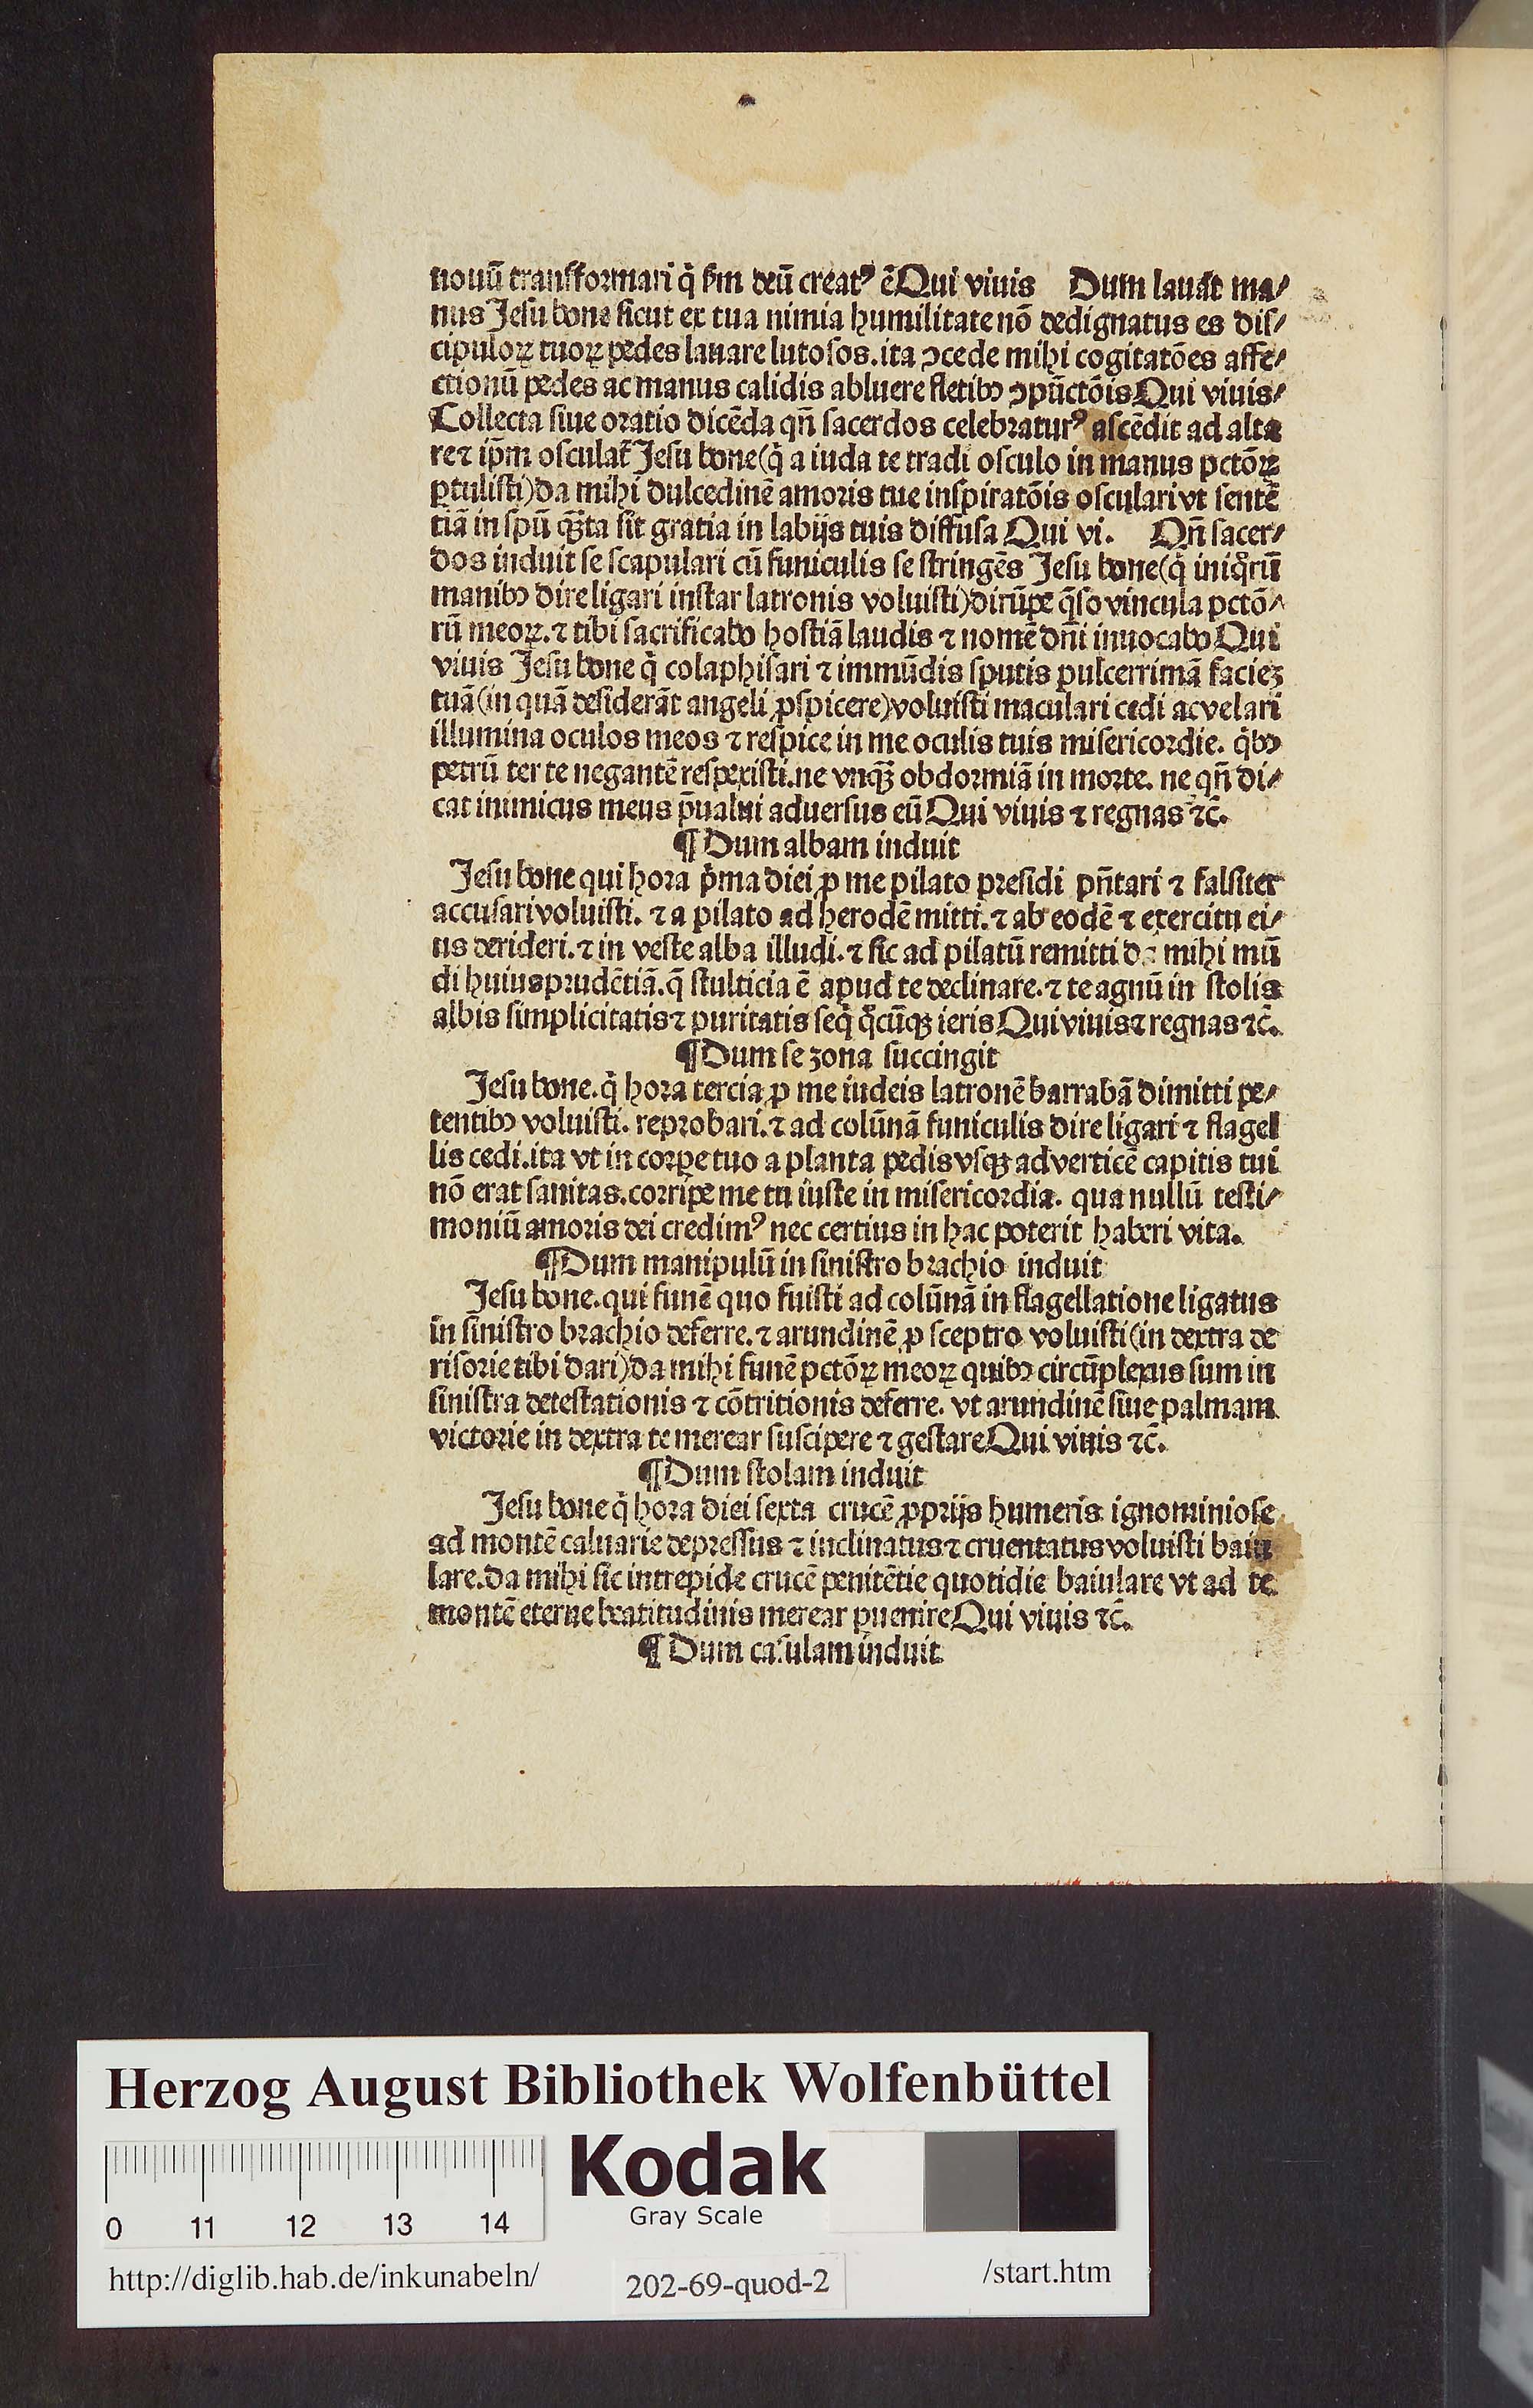 nouũ transformari q̇ ẜm deũ creatꝰ ẽ Qui viuis Dum lauat ma⸗
nus Jesu bone sicut ex tua nimia humilitate nõ dedignatus es dis⸗
cipuloꝝ tuoꝝ pedes lauare lutosos. ita ↄcede mihi cogitatões affe⸗
ctionũ pedes ac manus calidis abluere fletibꝰ ↄpũctõis Qui viuis⸗
Collecta siue oratio dicẽda qñ sacerdos celebraturꝰ ascẽdit ad alta
re ⁊ ip̃m osculat̃ Jesu bone (q̇ a iuda te tradi osculo in manus pctõꝝ
ꝑtulisti) da mihi dulcedinẽ amoris tue inspiratõis osculari vt sentẽ
tiã in spũ qꝫ̃ta sit gratia in labijs tuis diffusa Qui vi. Qñ sacer⸗
dos induit se scapulari cũ funiculis se stringẽs Jesu bone (q̇ iniqͦrũ
manibꝰ dire ligari instar latronis voluisti) dirũpe q̃so vincula pctõ⸗
rũ meoꝝ. ⁊ tibi sacrificabo hostiã laudis ⁊ nomẽ dñi inuocabo Qui
viuis Jesu bone q̇ colaphisari ⁊ immũdis sputis pulcerrimã facieꝫ
tuã (in quã desiderãt angeli ꝓspicere) voluisti maculari cedi ac velari
illumina oculos meos ⁊ respice in me oculis tuis misericordie. q̇bꝰ
petrũ ter te negantẽ respexisti. ne vnqꝫ̃ obdormiã in morte. ne qñ di⸗
cat inimicus meus p̃ualui aduersus eũ Qui viuis ⁊ regnas ⁊c̃.
¶ Dum albam induit
Jesu bone qui hora ṗma diei ꝓ me pilato presidi pñtari ⁊ falsiter
accusari voluisti. ⁊ a pilato ad herodẽ mitti. ⁊ ab eodẽ ⁊ exercitu ei⸗
us derideri. ⁊ in veste alba illudi. ⁊ sic ad pilatũ remitti da mihi mũ
di huius prudẽtiã. q̃ stulticia ẽ apud te declinare. ⁊ te agnũ in stolis
albis simplicitatis ⁊ puritatis seq̇ qͦcũqꝫ ieris Qui viuis ⁊ regnas ⁊c̃.
¶ Dum se zona succingit
Jesu bone. q̇ hora tercia ꝓ me iudeis latronẽ barrabã dimitti pe⸗
tentibꝰ voluisti. reprobari. ⁊ ad colũnã funiculis dire ligari ⁊ flagel
lis cedi. ita vt in corꝑe tuo a planta pedis vsqꝫ ad verticẽ capitis tui
nõ erat sanitas. corripe me tu iuste in misericordia. qua nullũ testi⸗
moniũ amoris dei credimꝰ nec certius in hac poterit haberi vita.
¶ Dum manipulũ in sinistro brachio induit
Jesu bone. qui funẽ quo fuisti ad colũnã in flagellatione ligatus
in sinistro brachio deferre. ⁊ arundinẽ ꝓ sceptro voluisti (in dextra de
risorie tibi dari) da mihi funẽ pctõꝝ meoꝝ quibꝰ circũplexus sum in
sinistra detestationis ⁊ cõtritionis deferre. vt arundinẽ siue palmam
victorie in dextra te merear suscipere ⁊ gestare Qui viuis ⁊c̃.
¶ Dum stolam induit
Jesu bone q̇ hora diei sexta crucẽ ꝓprijs humeris ignominiose
ad montẽ caluarie depressus ⁊ inclinatus ⁊ cruentatus voluisti baiu
lare. da mihi sic intrepide crucẽ penitẽtie quotidie baiulare vt ad te
montẽ eterne beatitudinis merear ꝑuenire Qui viuis ⁊c̃.
¶ Dum casulam induit
Herzog August Bibliothek Wolfenbüttel
Kodak
Gray Scale
0 11 12 13 14
http://diglib.hab.de/inkunabeln/ 202-69-quod-2 /start.htm